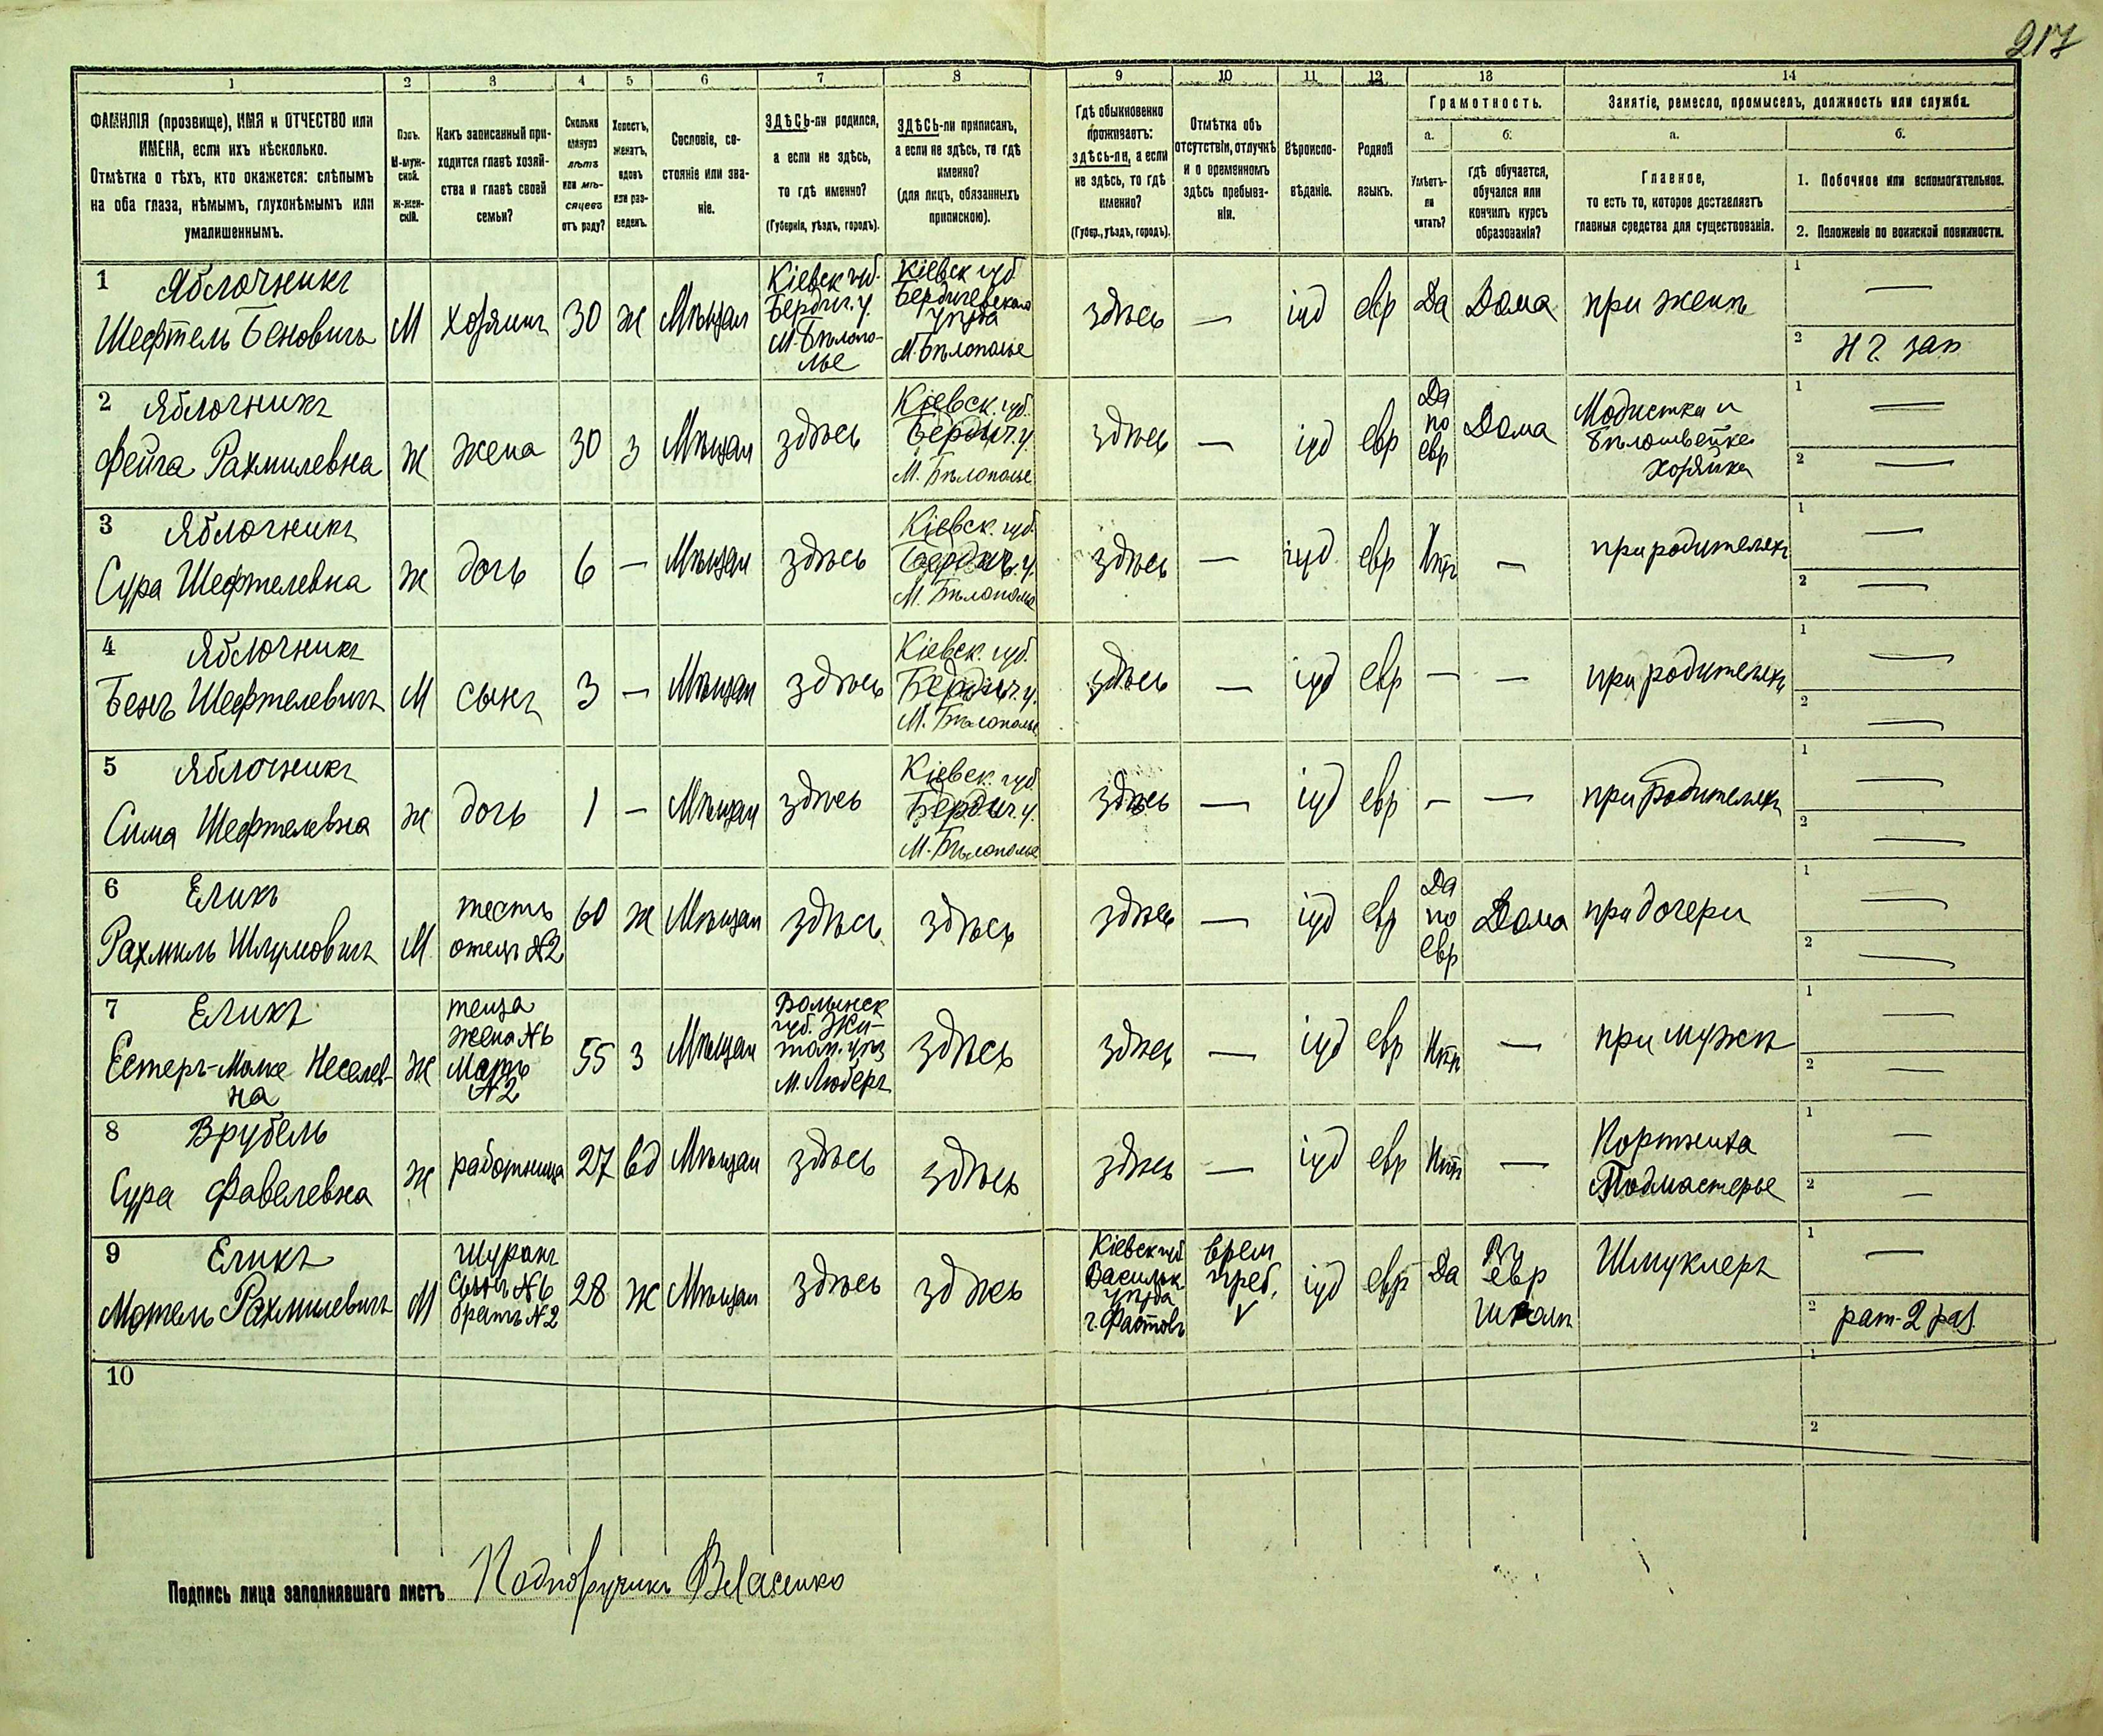 217
1 2 3 4 5 6 7 8 9 10 11 12 13 14
ФАМИЛІЯ (прозвище), ИМЯ и ОТЧЕСТВО или
ИМЕНА, если ихъ нѣсколько.
Отмѣтка о тѣхъ, кто окажется: слѣпымъ
на оба глаза, нѣмымъ, глухонѣмымъ или
умалишеннымъ.
Полъ.
М-муж-
ской.
Ж-жен-
скій.
Какъ записанный при-
ходится главѣ хозяй-
ства и главѣ своей
семьи?
Сколько
минуло
лѣтъ
или мѣ-
сяцевъ
отъ роду?
Холостъ,
женатъ,
вдовъ
или раз-
веденъ.
Сословіе, со-
стояніе или зва-
ніе.
ЗДѢСЬ-ли родился,
а если не здѣсь,
то гдѣ именно?
(Губернія, уѣздъ, городъ).
ЗДѢСЬ-ли приписанъ,
а если не здѣсь, то гдѣ
именно?
(для лицъ, обязанныхъ
припискою).
Гдѣ обыкновенно
проживаетъ:
здѣсь-ли, а если
не здѣсь, то гдѣ
именно?
(Губер., уѣздъ, городъ).
Отмѣтка объ
отсутствіи, отлучкѣ
и о временномъ
здѣсь пребыва-
ніи.
Вѣроиспо-
вѣданіе.
Родной
языкъ.
Грамотность.
а.
Умѣетъ-
ли
читать?
б.
гдѣ обучается,
обучался или
кончилъ курсъ
образованія?
Занятіе, ремесло, промыселъ, должность или служба.
а.
Главное,
то есть то, которое доставляетъ
главныя средства для существованія.
б.
1. Побочное или вспомогательное.
2. Положеніе по воинской повинности.
1 Яблочникъ
Шефтель Беновичъ
М
Хозяинъ
30
ж
Мѣщан
Кіевск губ.
Бердич. у.
М. Бѣлопо-
лье
Кіевск губ
Бердичевскаго
уѣзда
М. Бѣлополье
здѣсь
—
іуд
евр
Да
Дома
при женѣ
1 —
2 Н ч. зап
2 Яблочникъ
Фейга Рахмилевна
ж
жена
30
з
Мѣщан
здѣсь
Кіевск. губ.
Бердич. у.
М. Бѣлополье
здѣсь
—
іуд
евр
Да
по
евр
Дома
Модистка и
Бѣлошвейка
хозяйка
1 —
2 —
3 Яблочникъ
Сура Шефтелевна
ж
дочь
6
—
Мѣщан
здѣсь
Кіевск. губ.
Бердич. у.
М. Бѣлополье
здѣсь
—
іуд
евр
Нѣтъ
—
при родителяхъ
1 —
2 —
4 Яблочникъ
Бенъ Шефтелевичъ
М
сынъ
3
—
Мѣщан
здѣсь
Кіевск. губ.
Бердич. у.
М. Бѣлополье
здѣсь
—
іуд
евр
—
—
при родителяхъ
1 —
2 —
5 Яблочникъ
Сима Шефтелевна
ж
дочь
1
—
Мѣщан
здѣсь
Кіевск. губ.
Бердич. у.
М. Бѣлополье
здѣсь
—
іуд
евр
—
—
при родителяхъ
1 —
2 —
6 Еликъ
Рахмиль Шлумовичъ
М.
тесть
отецъ №2
60
ж
Мѣщан
здѣсь
здѣсь
здѣсь
—
іуд
евр
Да
по
евр
Дома
при дочери
1 —
2 —
7 Еликъ
Естеръ-Малке Неселев-
на
ж
теща
жена №6
Мать
№2
55
з
Мѣщан
Волынск
губ. Жи-
том. уѣз
М. Любаръ
здѣсь
здѣсь
—
іуд
евр
Нѣтъ
—
при мужѣ
1 —
2 —
8 Врубель
Сура Фавелевна
ж
работница
27
вд
Мѣщан
здѣсь
здѣсь
здѣсь
—
іуд
евр
Нѣтъ
—
Портниха
Подмастерье
1 —
2 —
9 Еликъ
Мотель Рахмилевичъ
М
шуринъ
Сынъ №6
братъ №2
28
ж
Мѣщан
здѣсь
здѣсь
Кіевск губ
Васильк.
уѣзда
г. Фастовъ
врем
преб.
V
іуд
евр
Да
Въ
евр
школѣ
Шмуклеръ
1 —
2 рат. 2 раз.
10
1
2
Подпись лица заполнявшаго листъ Подпоручикъ Власенко